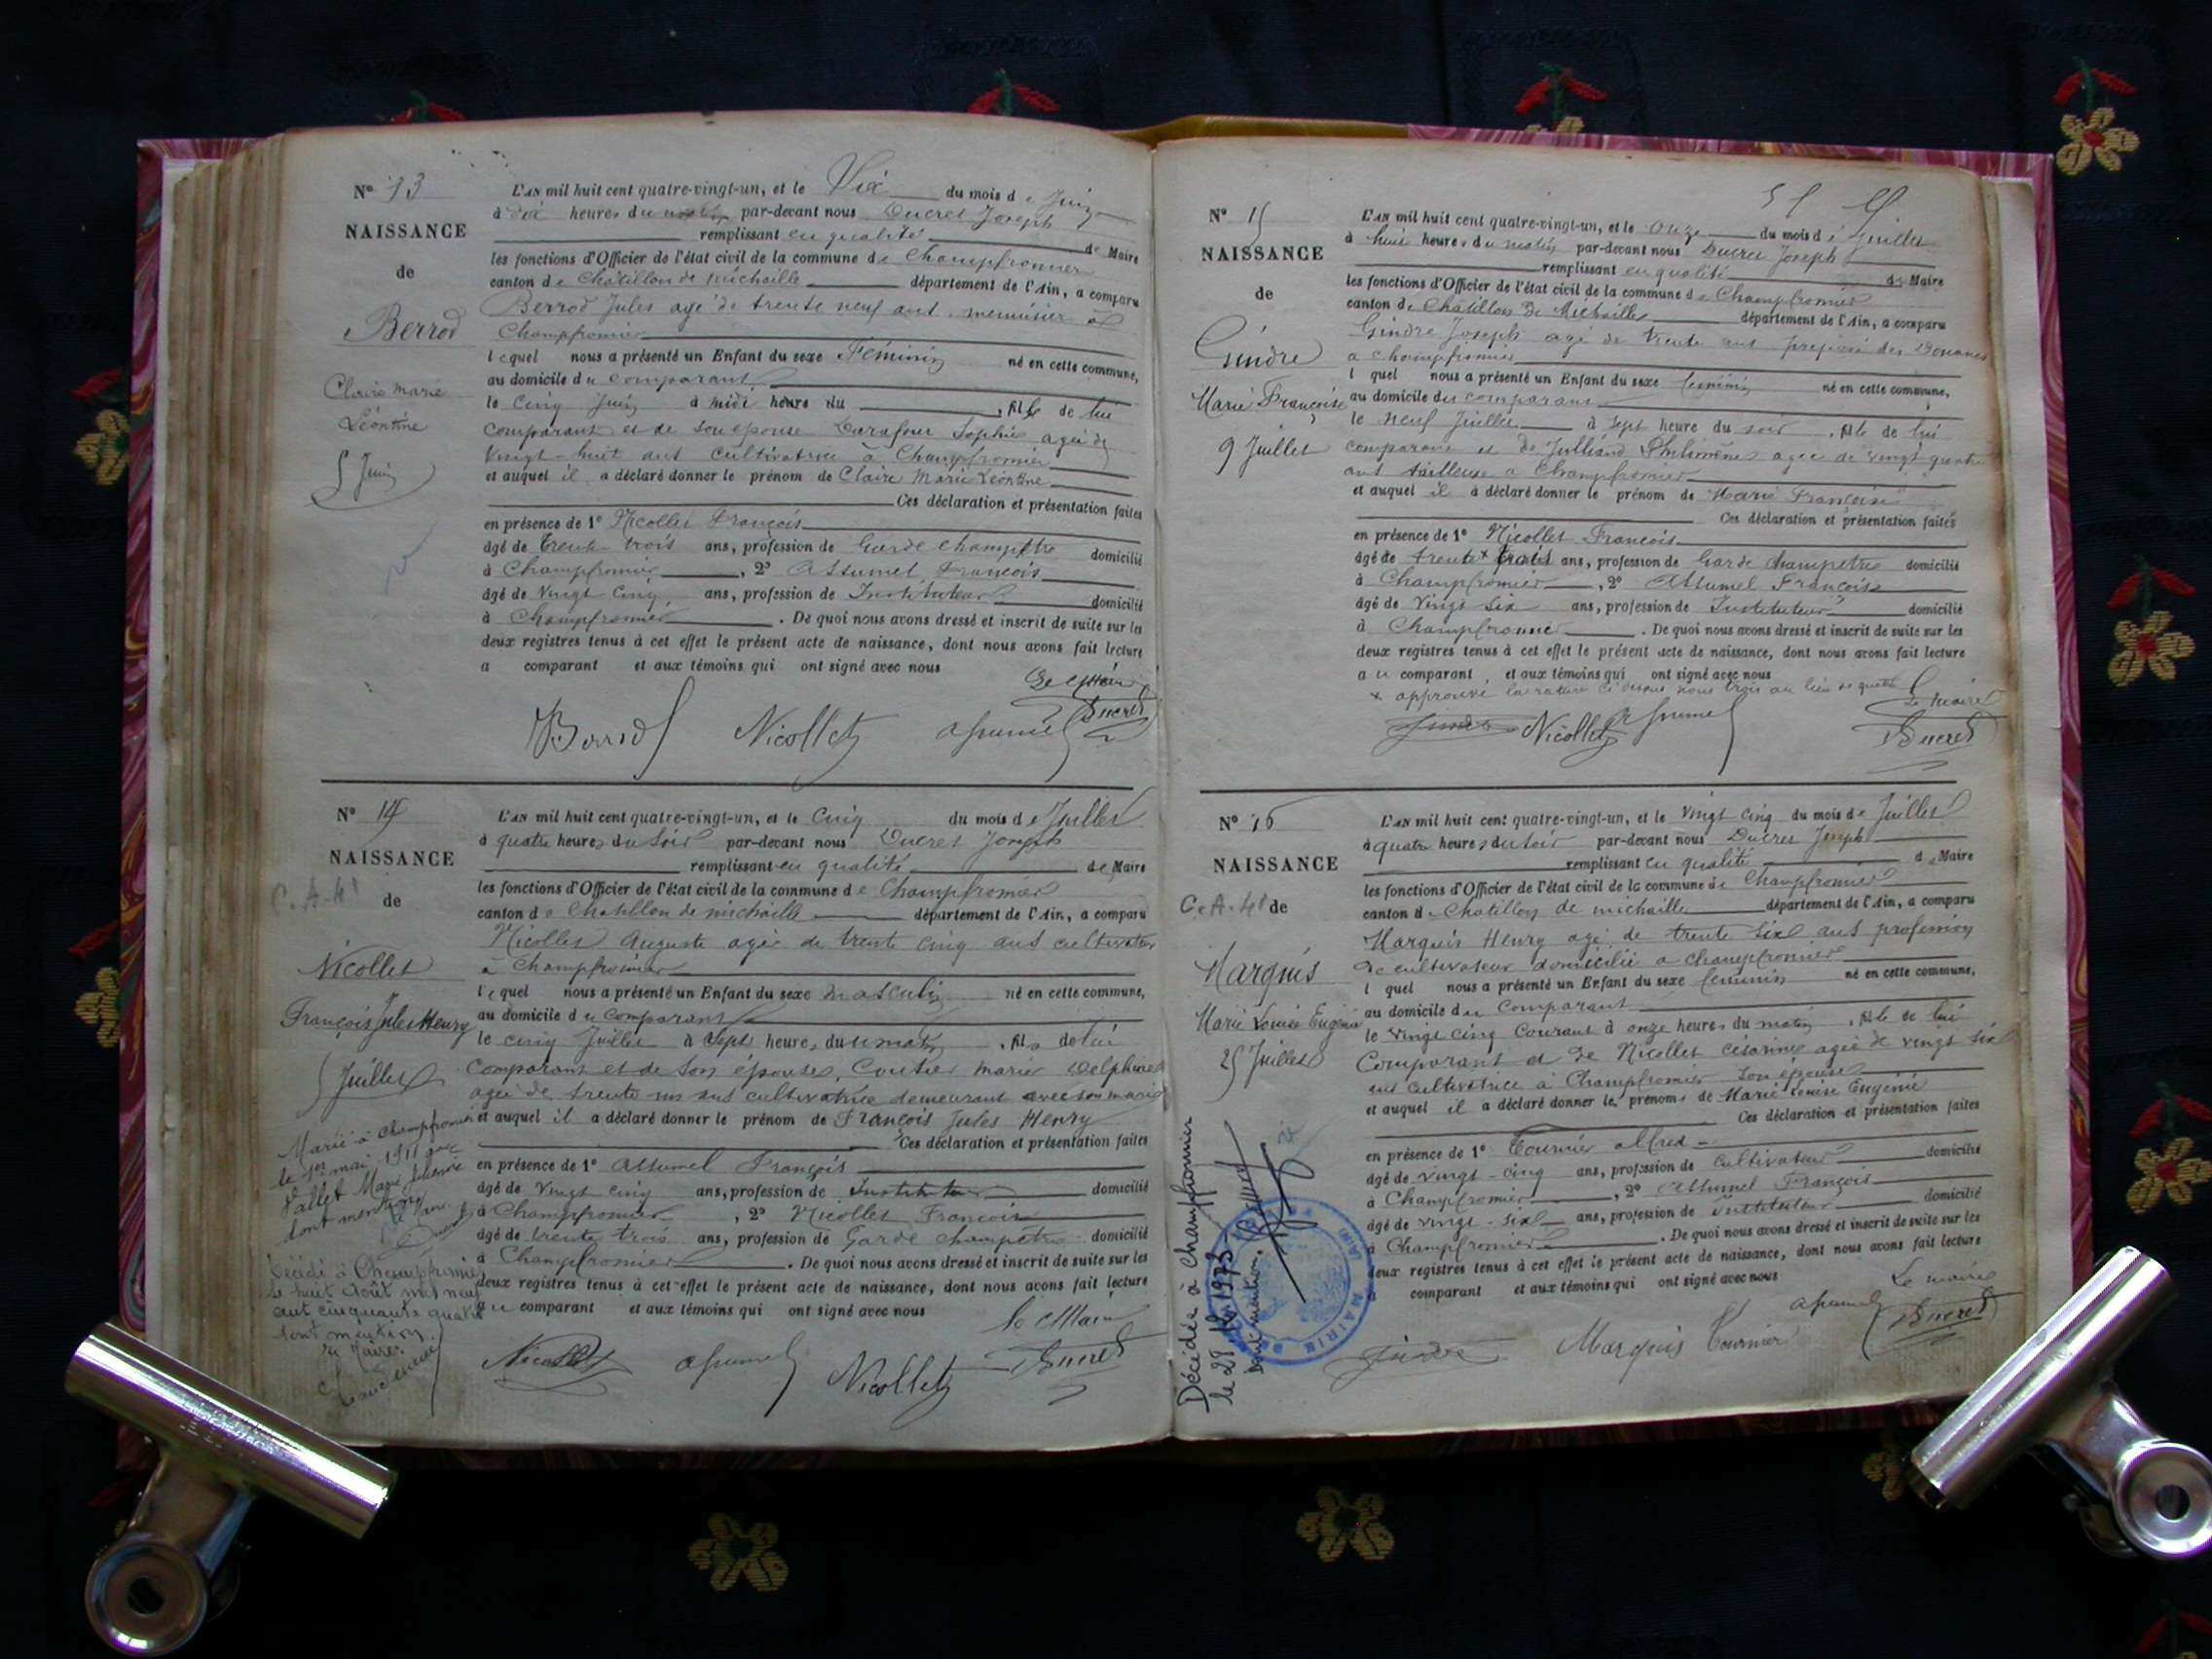 N° 13
NAISSANCE
de
Berrod
Claire Marie
Léontine
5 Juin
L'AN mil huit cent quatre-vingt-un, et le Six du mois de Juin
à dix heures du matin par-devant nous Ducret Joseph
remplissant en qualité de Maire
les fonctions d'Officier de l'état civil de la commune de Champfromier
canton de Châtillon de Michaille département de l'Ain, a comparu
Berrod Jules agé de trente neuf ans menuisier à
Champfromier
lequel nous a présenté un Enfant du sexe Féminin né en cette commune,
au domicile du comparant
le cinq Juin à midi heure du , fille de lui
comparant et de son épouse Durafour Sophie agée de
vingt-huit ans cultivatrice à Champfromier
et auquel il a déclaré donner le prénom de Claire Marie Léontine
Ces déclaration et présentation faites
en présence de 1° Nicollet François
âgé de trente trois ans, profession de Garde champêtre domicilié
à Champfromier , 2° Assumel François
âgé de Vingt Cinq ans, profession de Instituteur domicilié
à Champfromier . De quoi nous avons dressé et inscrit de suite sur les
deux registres tenus à cet effet le présent acte de naissance, dont nous avons fait lecture
a comparant et aux témoins qui ont signé avec nous
Le Maire
Berrod Nicollet Assumel Ducret
N° 14
NAISSANCE
C.A-48
de
Nicollet
François Jules Henry
5 Juillet
Marié à Champfromier
le 1er mai 1911 avec
Vallet Marie
dont mention
Décédé à Champfromier
le huit Août mil neuf
cent cinquante quatre
dont mention
Le Maire
L'AN mil huit cent quatre-vingt-un, et le Cinq du mois de Juillet
à quatre heures du Soir par-devant nous Ducret Joseph
remplissant en qualité de Maire
les fonctions d'Officier de l'état civil de la commune de Champfromier
canton de Chatillon de michaille département de l'Ain, a comparu
Nicollet Auguste agé de trente cinq ans cultivateur
à Champfromier
lequel nous a présenté un Enfant du sexe masculin né en cette commune,
au domicile du comparant
le cinq Juillet à Sept heures du matin , fils de lui
comparant et de son épouse, Coutier marie Delphine
agée de trente un ans cultivatrice demeurant avec son mari
et auquel il a déclaré donner le prénom de François Jules Henry
Ces déclaration et présentation faites
en présence de 1° Assumel François
âgé de Vingt cinq ans, profession de Instituteur domicilié
à Champfromier , 2° Nicollet François
âgé de trente trois ans, profession de Garde champêtre domicilié
à Champfromier . De quoi nous avons dressé et inscrit de suite sur les
deux registres tenus à cet effet le présent acte de naissance, dont nous avons fait lecture
au comparant et aux témoins qui ont signé avec nous
le Maire
Nicollet Assumel Nicollet Ducret
N° 15
NAISSANCE
de
Gindre
Marie Françoise
9 Juillet
L'AN mil huit cent quatre-vingt-un, et le onze du mois de Juillet
à huit heures du matin par-devant nous Ducret Joseph
remplissant en qualité de Maire
les fonctions d'Officier de l'état civil de la commune de Champfromier
canton de Châtillon de Michaille département de l'Ain, a comparu
Gindre Joseph agé de trente ans préposé des Douanes
a champfromier
l quel nous a présenté un Enfant du sexe féminin né en cette commune,
au domicile du comparant
le neuf Juillet à sept heure du soir , fille de lui
comparant et de Julliand Philomène agée de vingt quatre
ans tailleuse a Champfromier
et auquel il a déclaré donner le prénom de Marie Françoise
Ces déclaration et présentation faites
en présence de 1° Nicollet François
âgé de trente x trois ans, profession de Garde champetre domicilié
à Champfromier , 2° Assumel François
âgé de Vingt Six ans, profession de Instituteur domicilié
à Champfromier . De quoi nous avons dressé et inscrit de suite sur les
deux registres tenus à cet effet le présent acte de naissance, dont nous avons fait lecture
au comparant et aux témoins qui ont signé avec nous
x approuvé la rature ci dessus trois au lieu de quatre
Le maire
Gindre Nicollet Assumel Ducret
N° 16
NAISSANCE
C.A-48 de
Marquis
Marie Louise Eugénie
25 Juillet
Décédée à Champfromier
le 28 1973
Dont mention.
MAIRIE DE
L'AN mil huit cent quatre-vingt-un, et le Vingt cinq du mois de Juillet
à quatre heures du soir par-devant nous Ducret Joseph
remplissant en qualité de Maire
les fonctions d'Officier de l'état civil de la commune de Champfromier
canton de Chatillon de michaille département de l'Ain, a comparu
Marquis Henry agé de trente Six ans profession
de cultivateur domicilié a champfromier
l quel nous a présenté un Enfant du sexe féminin né en cette commune,
au domicile du Comparant
le vingt cinq Courant à onze heures du matin , fille de lui
Comparant et de Nicollet césarine agée de vingt six
ans cultivatrice à Champfromier son épouse
et auquel il a déclaré donner les prénoms de Marie Louise Eugénie
Ces déclaration et présentation faites
en présence de 1° Tournier alfred
âgé de vingt-cinq ans, profession de cultivateur domicilié
à Champfromier , 2° Assumel François
âgé de vingt-six ans, profession de instituteur domicilié
à Champfromier . De quoi nous avons dressé et inscrit de suite sur les
deux registres tenus à cet effet le présent acte de naissance, dont nous avons fait lecture
a comparant et aux témoins qui ont signé avec nous
Le maire
Gindre Marquis Tournier Assumel Ducret